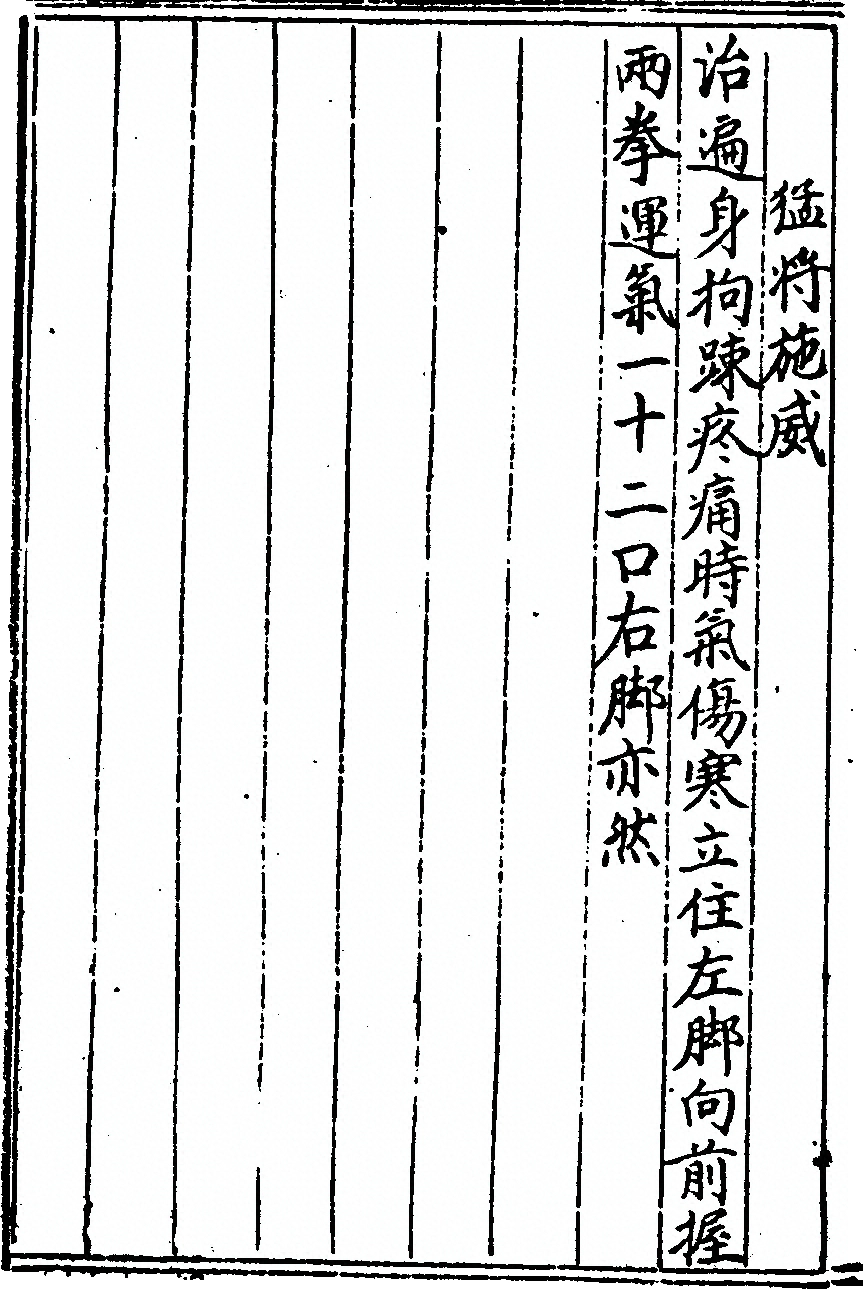 猛將施威
治遍身拘踈疼痛時氣傷寒立住左脚向前握
兩拳運氣一十二口右脚亦然